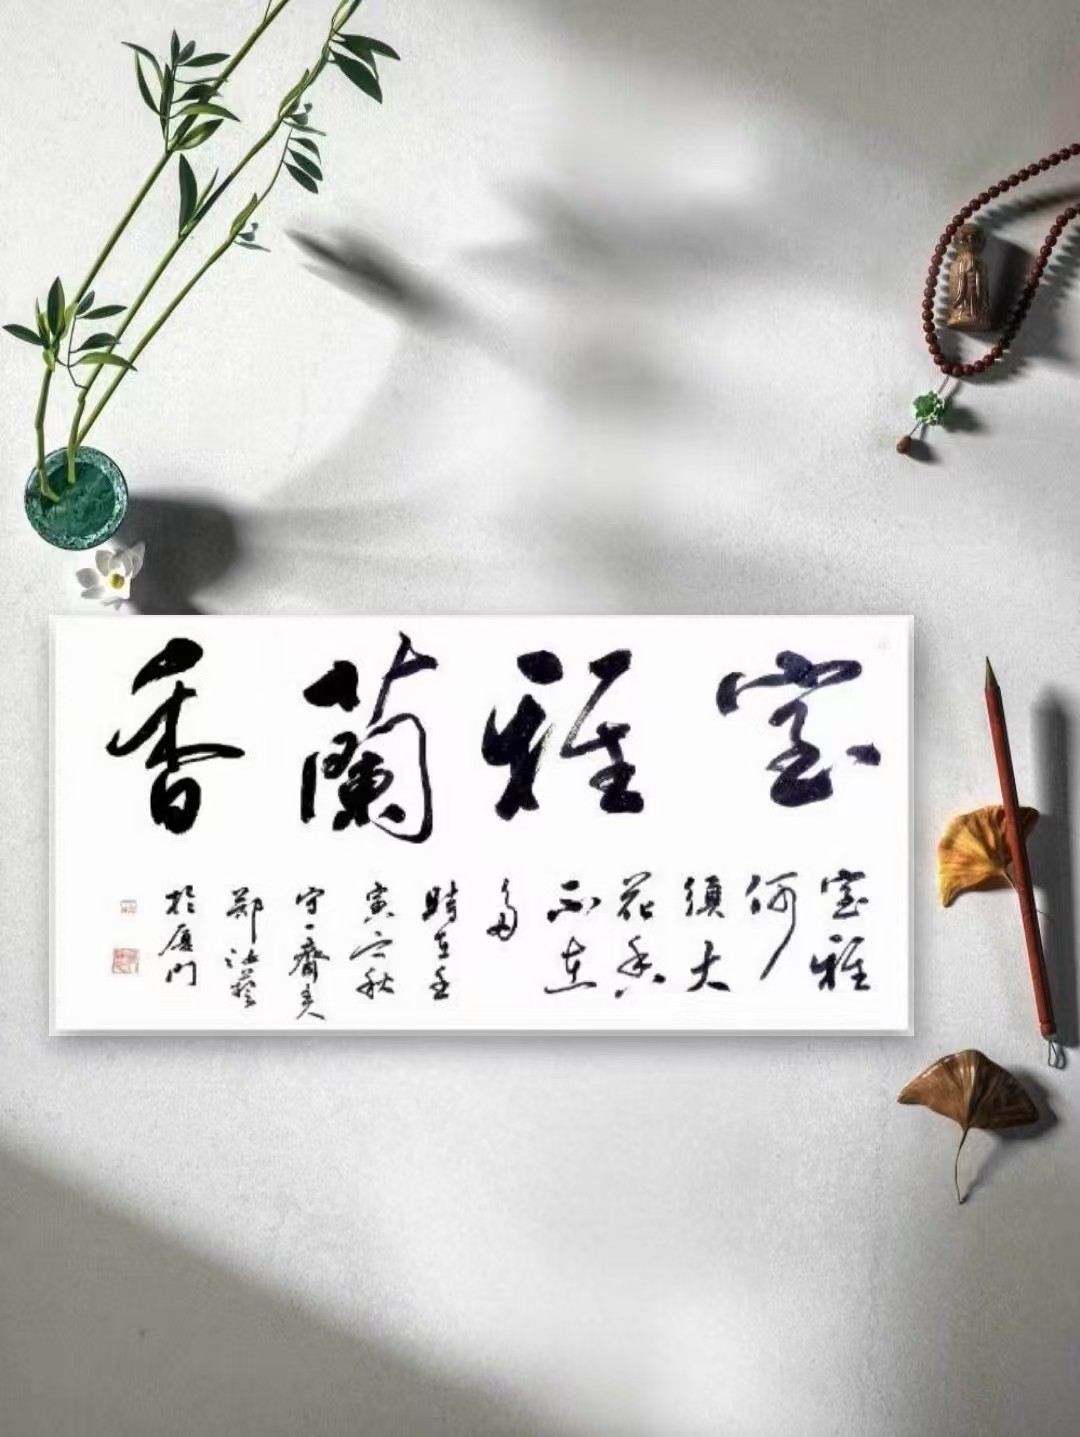 室雅蘭香
室雅
何
須大
花香
不在
多
時在壬
寅之秋
守一齋主人
鄭江藝
於厦門